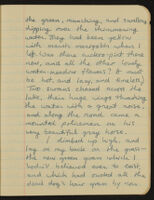 the green, munching, and swallows
dipping over the shimmering
water. They had been yellow
with marsh marigolds when I
left was there ever just that
now, and all the other lovely
water-meadow flowers? It must
be hot, and lazy, and timeless.
Two swans chased across the
lake, their huge wings thrashing
the water with a great noise,
and along the road came a
mounted policeman on his
very beautiful grey horse.
I climbed up high, and
lay on my back on the grass—
the new green grass which I
hadn't believed ever to exist,
and which had ousted all the
dead dog's hair grass by now